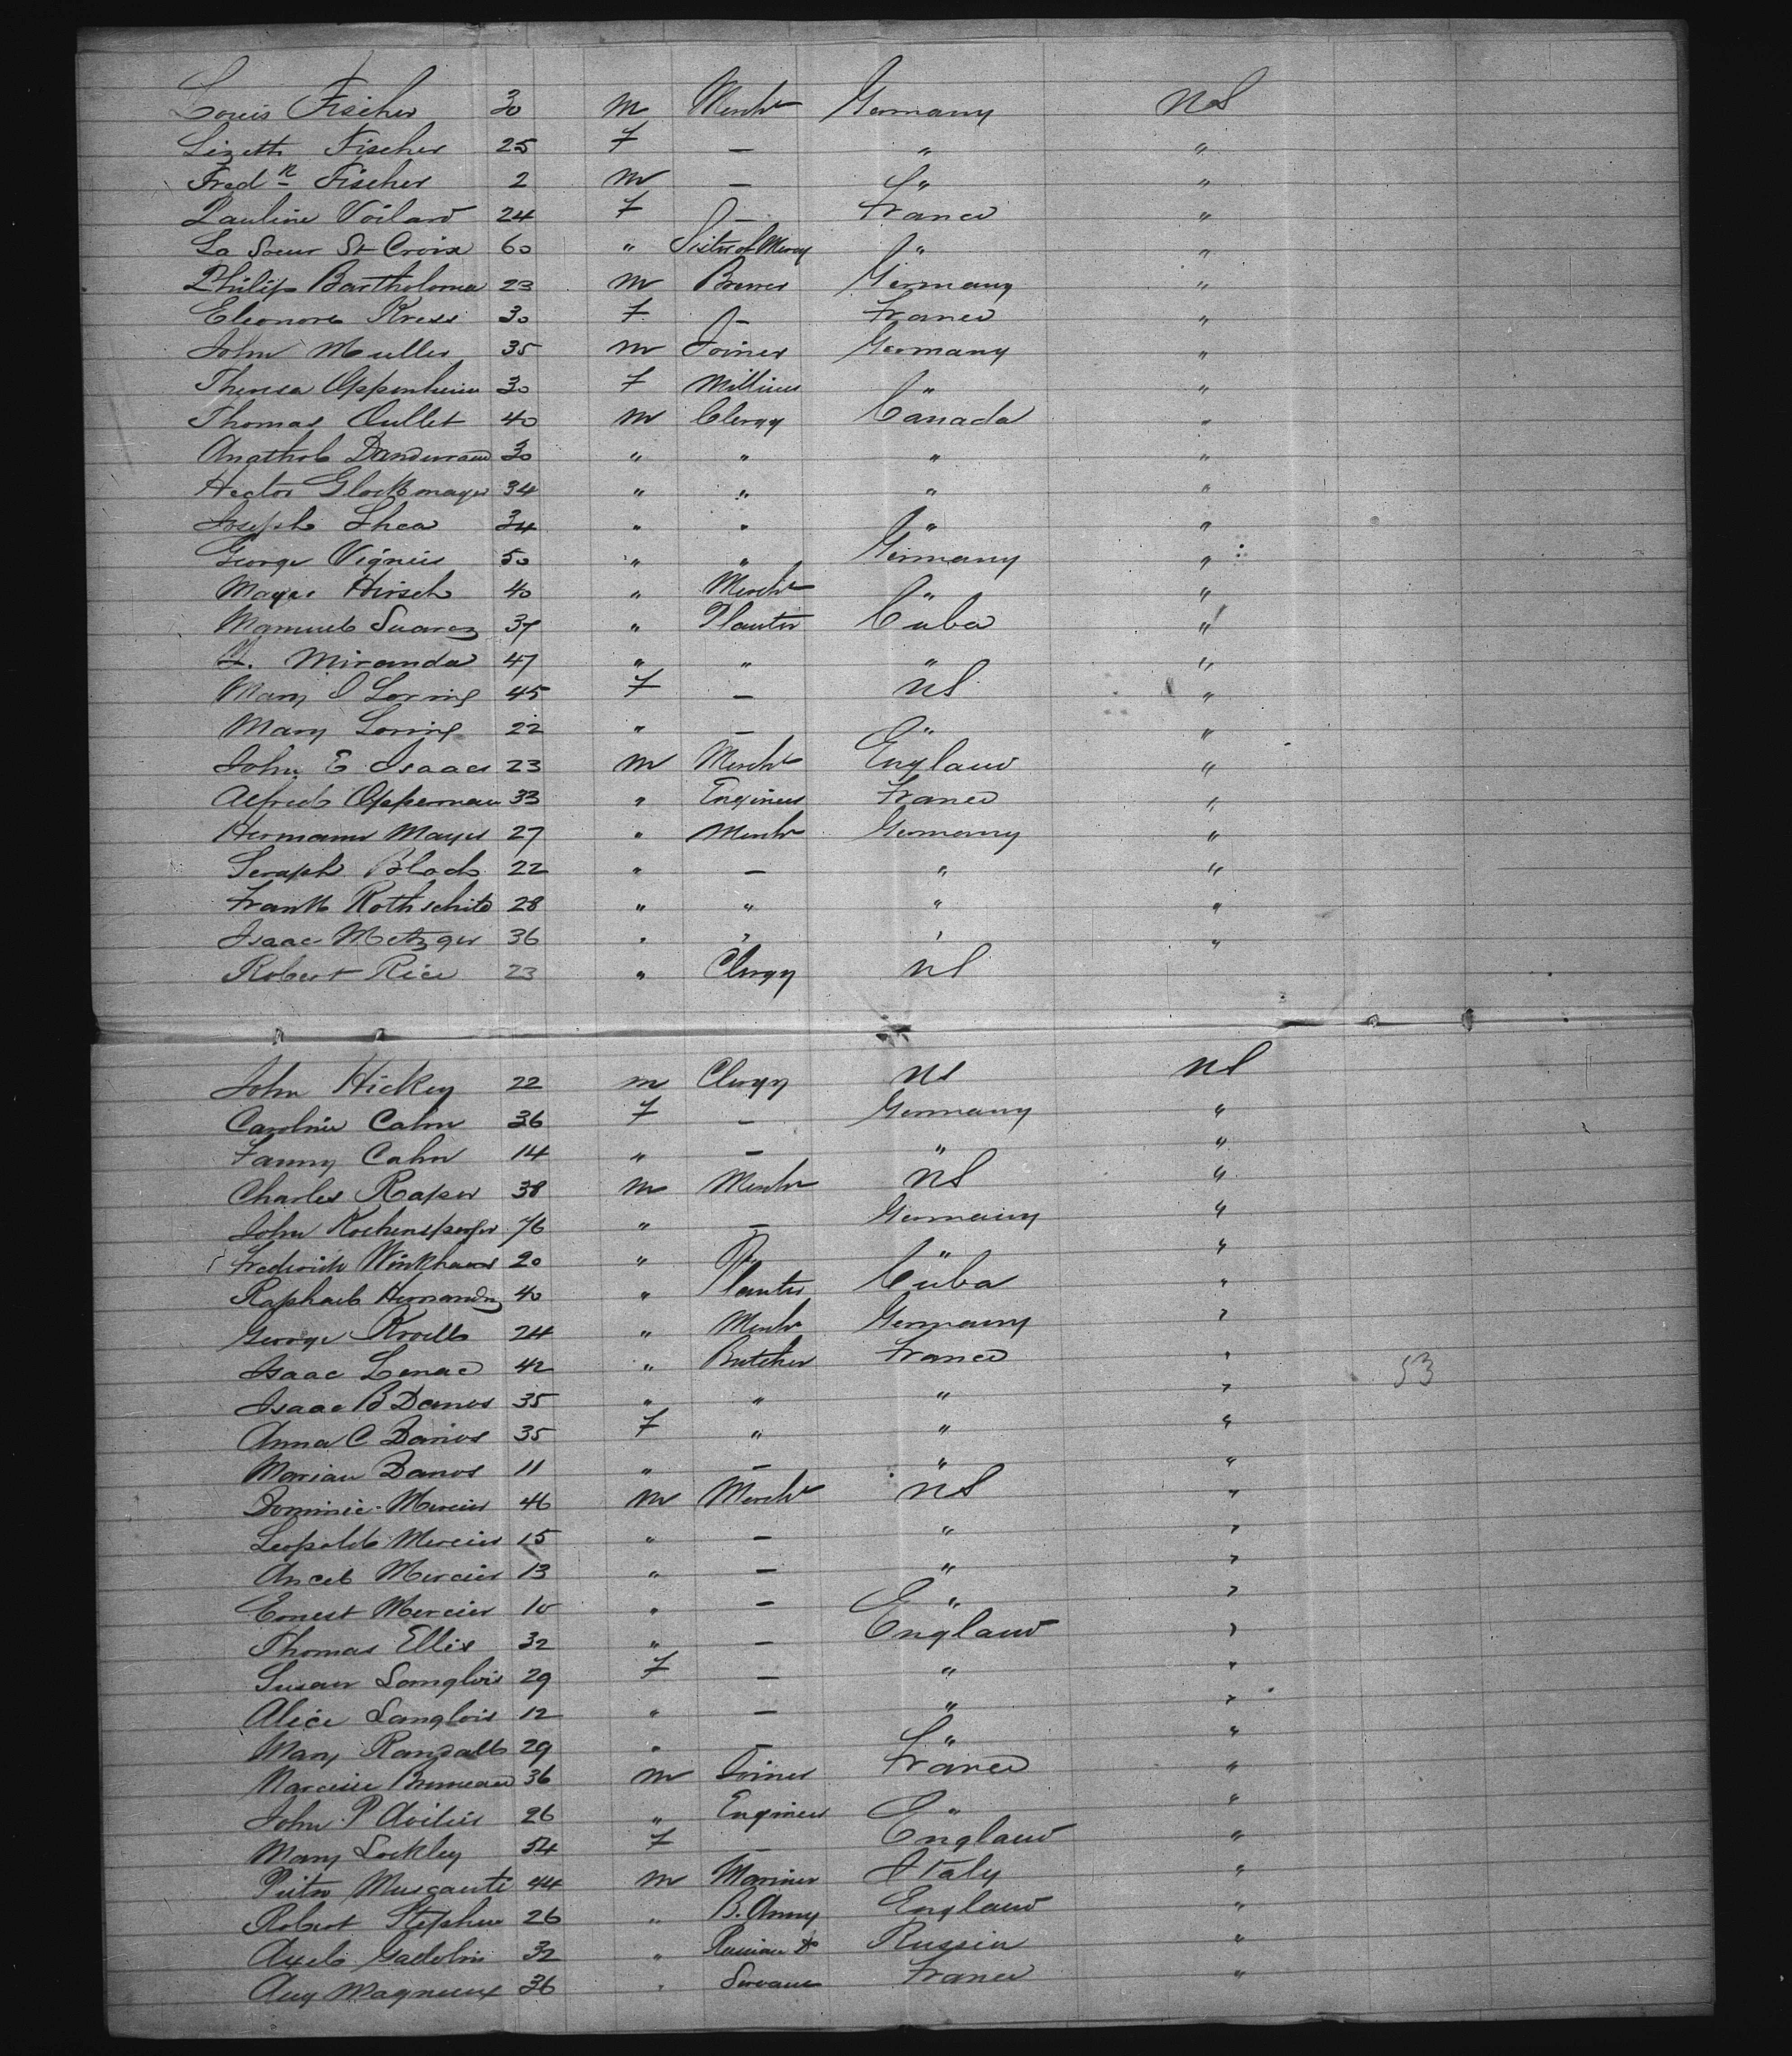 Louis Fischer 30 m Mercht Germany US
Lizette Fischer 25 F — " "
Fredk Fischer 2 m — " "
Pauline Voilard 24 F — France "
La Soeur St Croix 60 " Sister of Mercy " "
Philip Bartholomea 23 m Brewer Germany "
Eleonore Kress 30 F — France "
John Muller 35 m Joiner Germany "
Theresa Oppenheim 30 F Milliner " "
Thomas Oullet 40 m Clergy Canada "
Anathole Dandurand 30 " " " "
Hector Glockmayer 34 " " " "
Joseph Shea 34 " " " "
George Vigneis 50 " " Germany "
Mayer Hirsch 40 " Mercht " "
Manuel Suarez 37 " Planter Cuba "
Miranda 47 " " " "
Mary Loring 45 F — US "
Mary Loring 22 " — " "
John E Isaacs 23 m Mercht England "
Alfred Opperman 33 " Engineer France "
Hermann Mayer 27 " Mercht Germany "
Seraph Bloch 22 " — " "
Frank Rothschild 28 " " " "
Isaac Metzger 36 " " " "
Robert Rice 23 " Clergy US
John Hickey 22 m Clergy US US
Caroline Cahn 36 F — Germany "
Fanny Cahn 14 " — " "
Charles Raper 38 m Mercht US "
John 76 " — Germany "
Frederick Winkhaus 20 " — " "
Raphael Hernandez 40 " Planter Cuba "
George Kroell 24 " Mercht Germany "
Isaac Lenac 42 " Butcher France " 53
Isaac B Danos 35 " " " "
Anna C Danos 35 F " " "
Marian Danos 11 " — " "
Dominic Mercier 46 m Mercht US "
Leopold Mercier 15 " — " "
Ancel Mercier 13 " — " "
Ernest Mercier 10 " — " "
Thomas Ellis 32 " — England "
Susan Langlois 29 F — " "
Alice Langlois 12 " — " "
Mary Randall 29 " — " "
Narcisse Bruneau 36 m Joiner France "
John P 26 " Engineer " "
Mary Lockley 54 F — England "
Pietro Muscante 44 m Mariner Italy "
Robert Stephen 26 " B. Army England "
Axel Gadolin 32 " Russian Russia "
Aug Magneux 36 " Servant France "